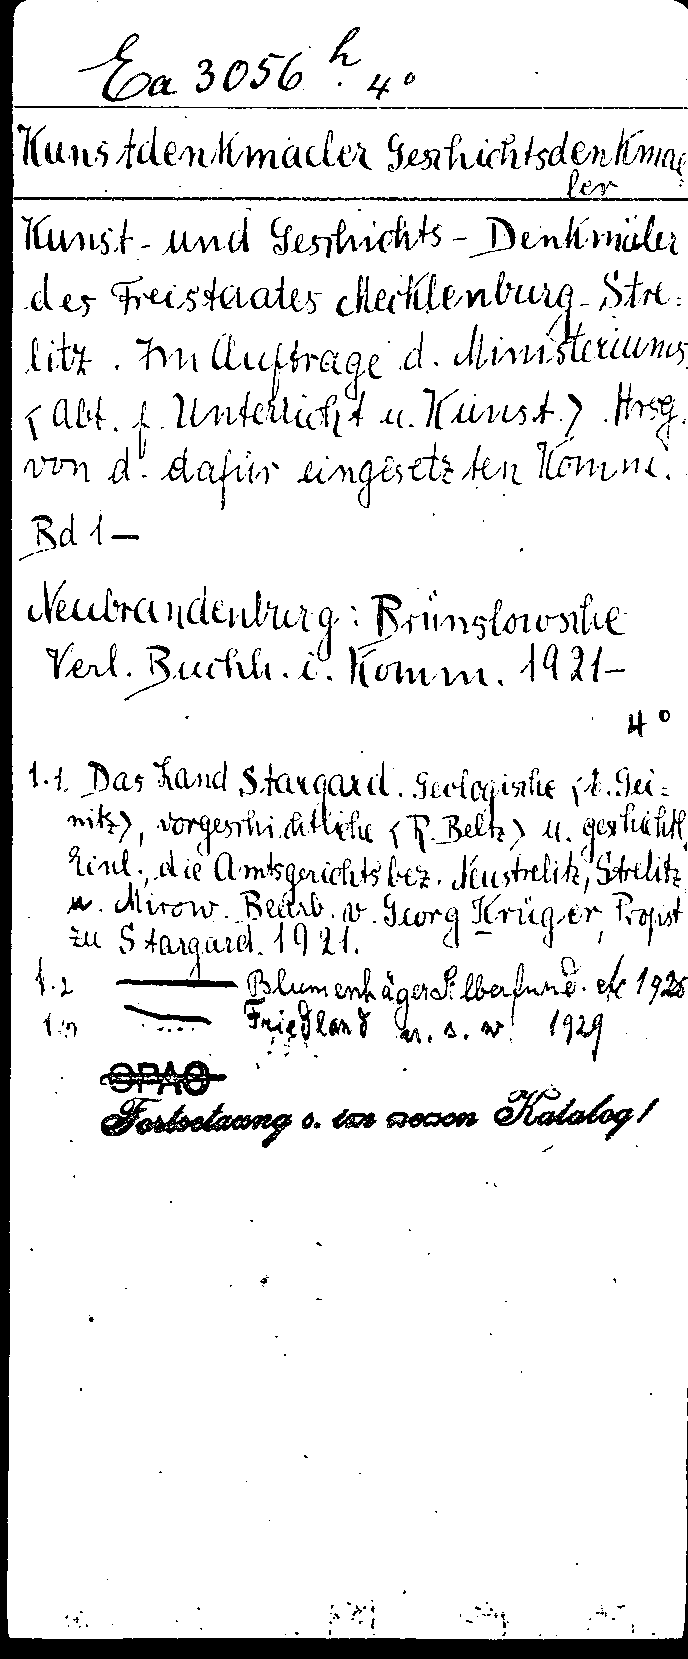 Ea 3056 h 4°
Kunstdenkmaeler Geschichtsdenkmae
ler
Kunst- und Geschichts-Denkmäler
des Freistaates Mecklenburg-Stre=
litz. Im Auftrage d. Ministeriums
<Abt. f. Unterricht u. Kunst.> Hrsg.
von d. dafür eingesetzten Komm.
Bd 1–
Neubrandenburg: Brünslowsche
Verl. Buchh. i. Komm. 1921–
4°
1.1. Das Land Stargard. Geologische <E. Gei=
nitz>, vorgeschichtliche <R. Beltz> u. geschichtl.
Einl., die Amtsgerichtsbez. Neustrelitz, Strelitz
u. Mirow. Bearb. v. Georg Krüger, Propst
zu Stargard. 1921.
1.2 — Blumenhäger Silberfund. etc 1925
— Friedland u. s. w. 1929
OPAC
Fortsetzung s. im neuen Katalog!